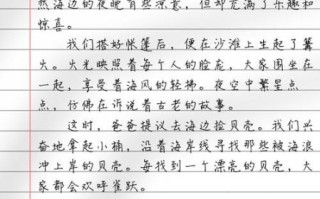 然海边的夜晚有些凉意，但却充满了乐趣和
惊喜。
我们搭好帐篷后，便在沙滩上生起了篝
火。火光映照着每个人的脸庞，大家围坐在
一起，享受着海风的轻拂。夜空中繁星点
点，仿佛在诉说着古老的故事。
这时，爸爸提议去海边捡贝壳。我们兴
奋地拿起小桶，沿着海岸线寻找那些被海浪
冲上岸的贝壳。每找到一个漂亮的贝壳，大
家都会欢呼雀跃。